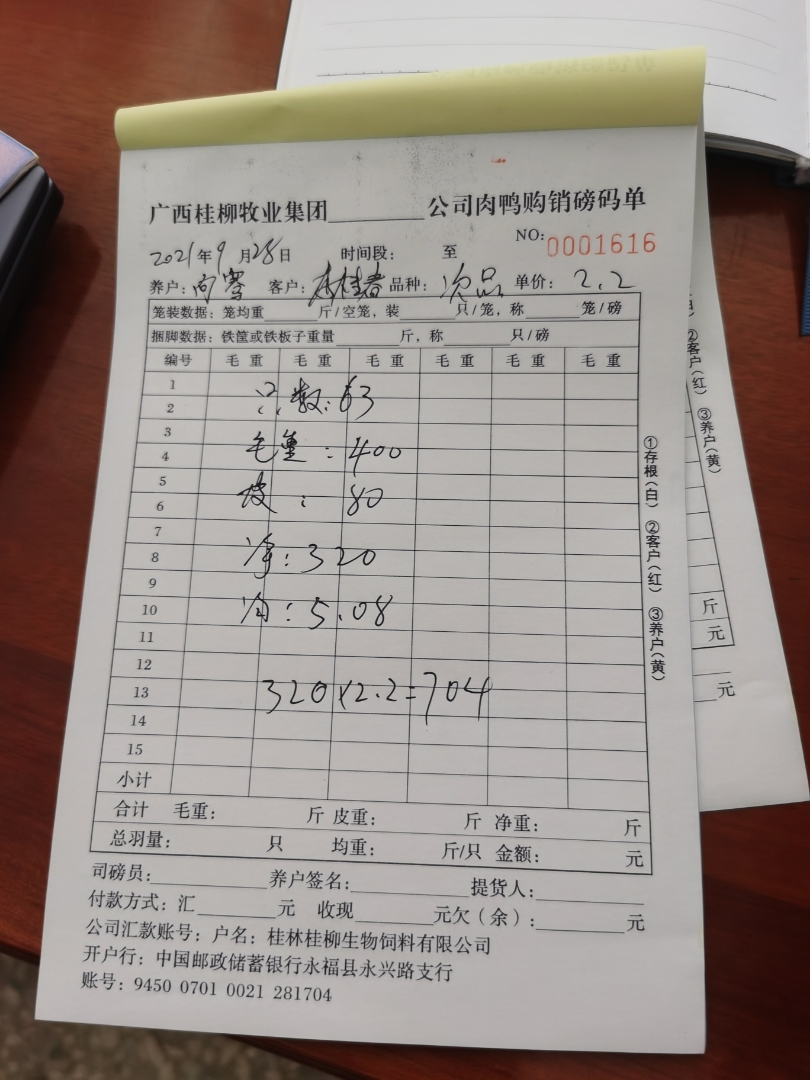 广西桂柳牧业集团________公司肉鸭购销磅码单
NO: 0001616
2021年9月28日 时间段: 至
养户: 向 客户: 桂者 品种: 次品 单价: 2.2
笼装数据: 笼均重______斤/空笼, 装______只/笼, 称______笼/磅
捆脚数据: 铁筐或铁板子重量______斤, 称______只/磅
编号 毛重 毛重 毛重 毛重 毛重 毛重
1
只数: 63
2
3
毛重: 400
4
5
皮: 80
6
7
净: 320
8
9
均: 5.08
10
11
12
320×2.2=704
13
14
15
小计
合计 毛重: 斤 皮重: 斤 净重: 斤
总羽量: 只 均重: 斤/只 金额: 元
司磅员:________ 养户签名:________ 提货人:________
付款方式: 汇______元 收现______元欠(余):______元
公司汇款账号: 户名: 桂林桂柳生物饲料有限公司
开户行: 中国邮政储蓄银行永福县永兴路支行
账号: 9450 0701 0021 281704
①存根(白) ②客户(红) ③养户(黄)
②客户(红) ③养户(黄)
斤
元
元